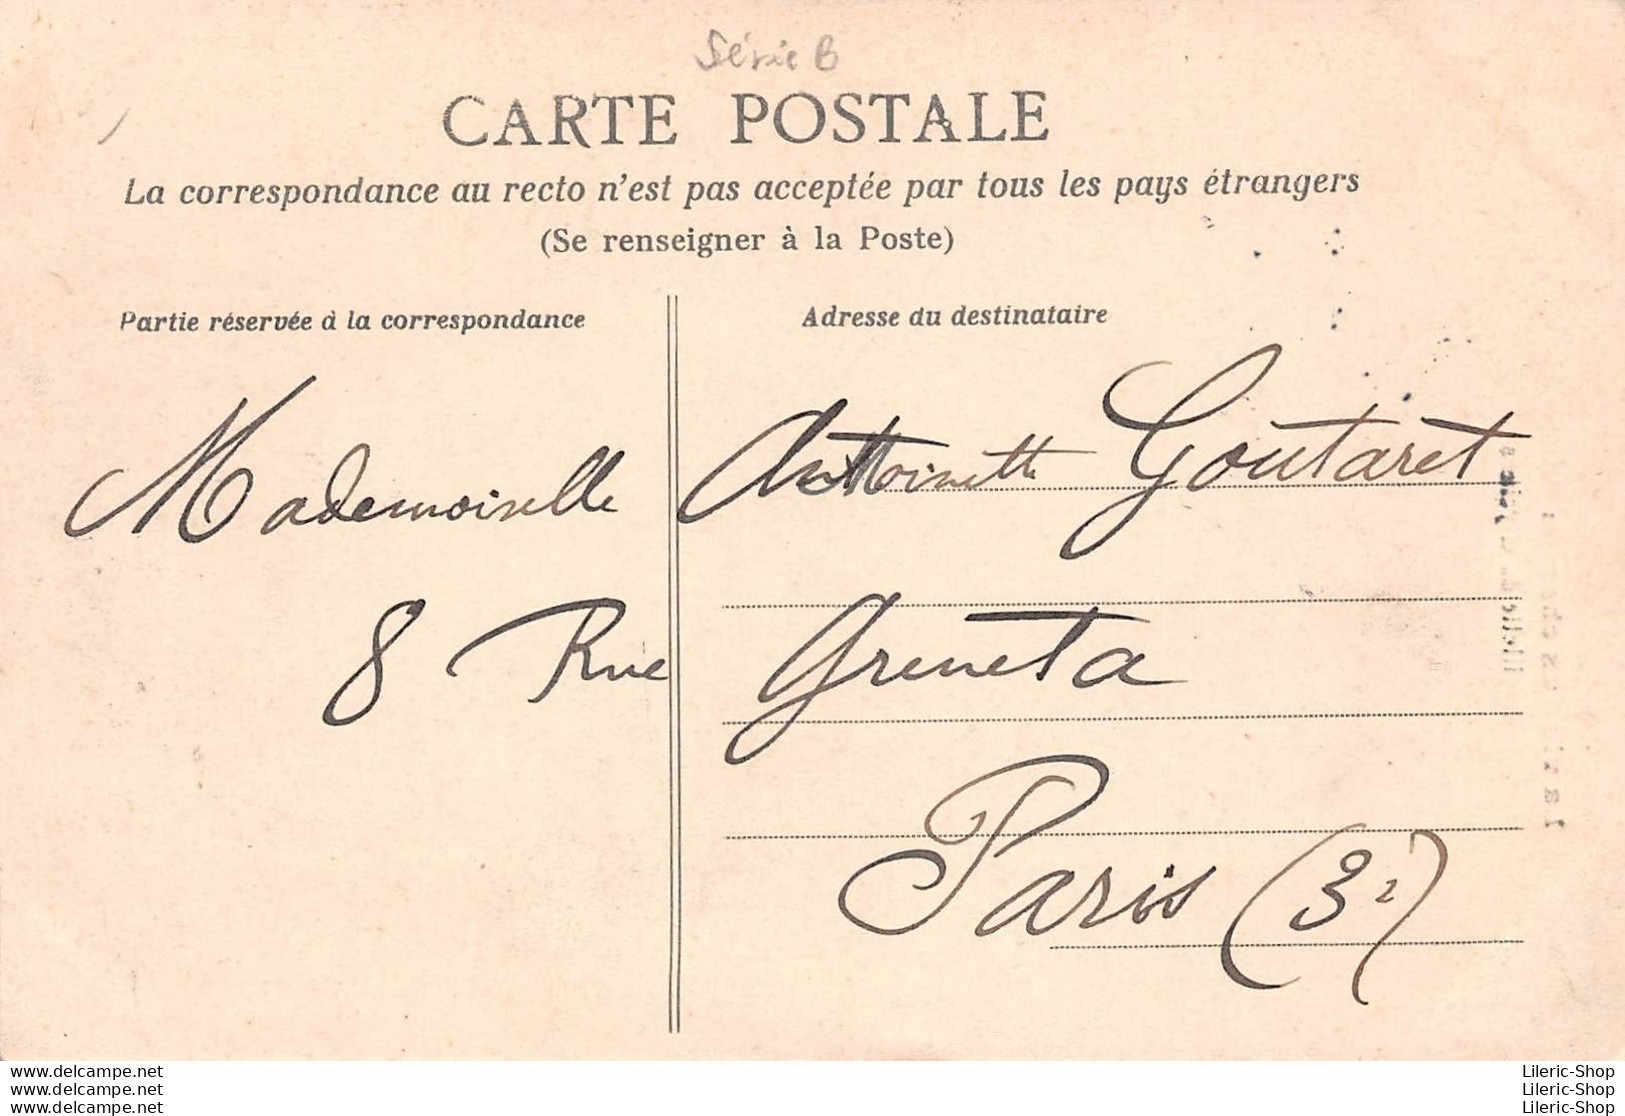 Série B
CARTE POSTALE
La correspondance au recto n'est pas acceptée par tous les pays étrangers
(Se renseigner à la Poste)
Partie réservée à la correspondance
Adresse du destinataire
Mademoiselle Antoinette Goutaret
8 Rue Greneta
Paris (3e)
www.delcampe.net
www.delcampe.net
www.delcampe.net
Lileric-Shop
Lileric-Shop
Lileric-Shop